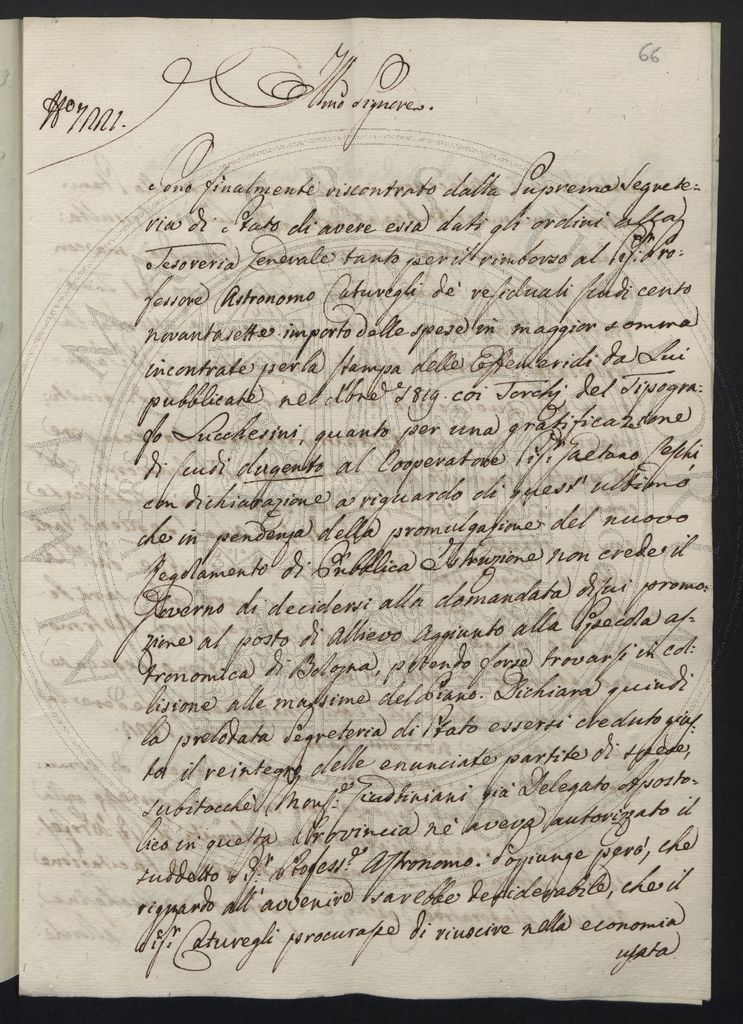 66
Ill.mo Signore.
Sono finalmente riscontrato dalla Suprema Segrete-
ria di Stato di avere essa dati gli ordini alla
Tesoreria Generale tanto per il rimborso al Sig.r Pro-
fessore Astronomo Caturegli de' residuali scudi cento
novantasette importo delle spese in maggior somma
incontrate per la stampa delle Effemeridi da Lui
pubblicate nel 1819. coi Torchj del Tipogra-
fo Lucchesini, quanto per una gratificazione
di scudi dugento al Cooperatore Sig.r Gaetano Ceschi
con dichiarazione a riguardo di quest' ultimo
che in pendenza della promulgazione del nuovo
Regolamento di Pubblica Istruzione non crede il
Governo di decidersi alla domandata di lui promo-
zione al posto di Allievo Aggiunto alla Specola as-
tronomica di Bologna, potendo forse trovarsi in col-
lisione alle massime del Piano. Dichiara quindi
la prelodata Segreteria di Stato essersi creduto gius-
to il reintegro delle enunciate partite di spese,
subitocchè Mons.r Giustiniani già Delegato Aposto-
lico in questa Provincia ne aveva autorizzato il
suddetto Sig.r Profess.e Astronomo. Sogiunge però, che
riguardo all' avvenire sarebbe desiderabile, che il
Sig.r Caturegli procurasse di riuscire nella economia
usata